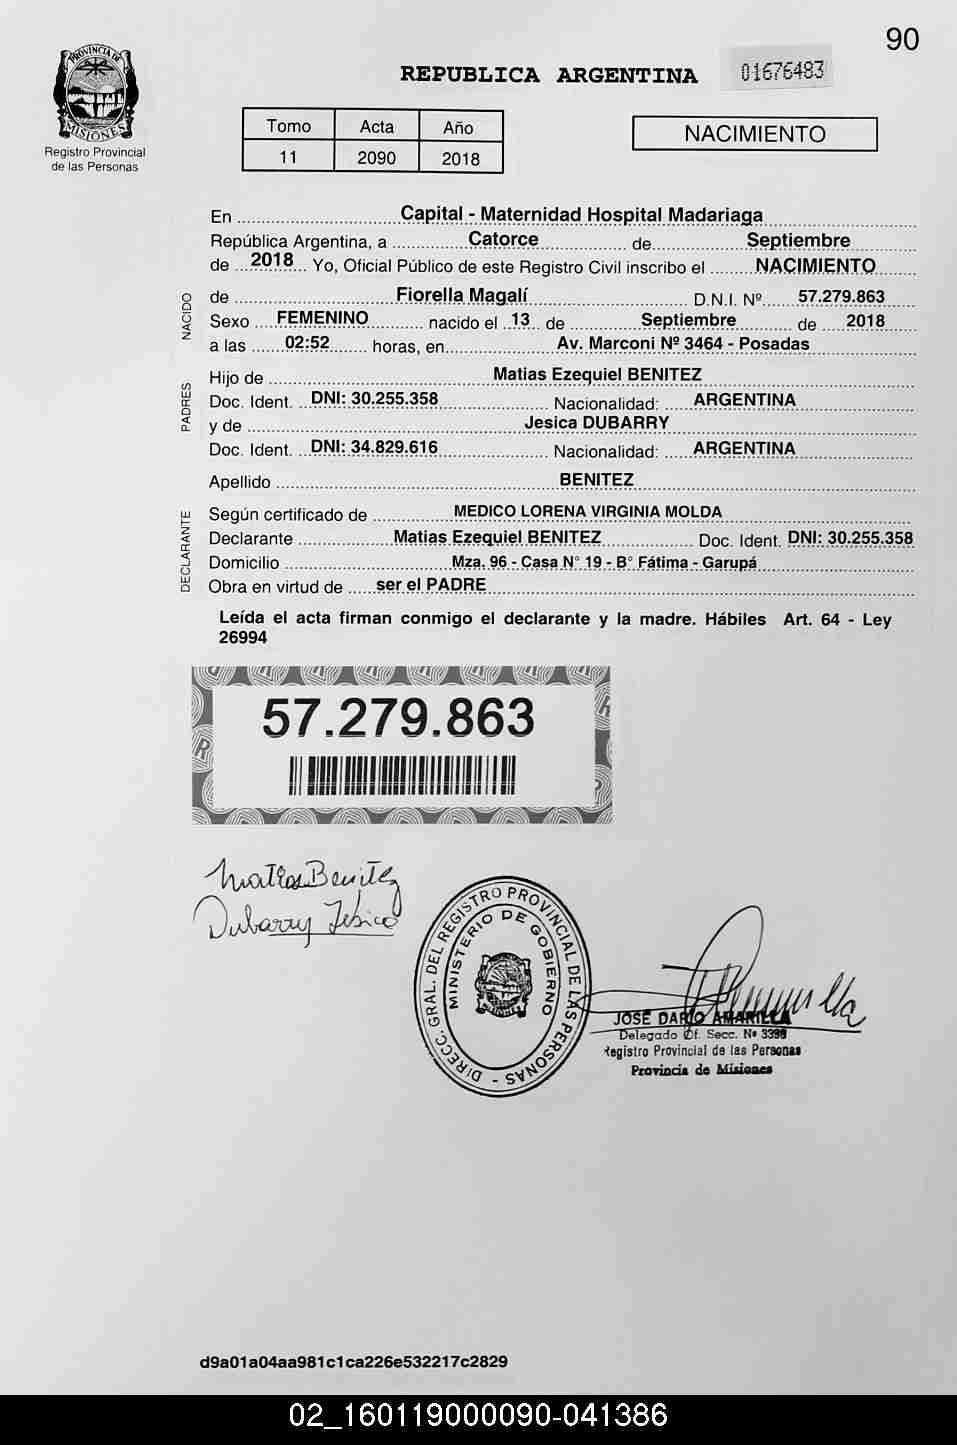 90
PROVINCIA DE
MISIONES
Registro Provincial
de las Personas
REPUBLICA ARGENTINA
01676483
Tomo Acta Año
11 2090 2018
NACIMIENTO
En Capital - Maternidad Hospital Madariaga
República Argentina, a Catorce de Septiembre
de 2018 Yo, Oficial Público de este Registro Civil inscribo el NACIMIENTO
NACIDO
de Fiorella Magalí D.N.I. Nº 57.279.863
Sexo FEMENINO nacido el 13 de Septiembre de 2018
a las 02:52 horas, en Av. Marconi Nº 3464 - Posadas
PADRES
Hijo de Matias Ezequiel BENITEZ
Doc. Ident. DNI: 30.255.358 Nacionalidad: ARGENTINA
y de Jesica DUBARRY
Doc. Ident. DNI: 34.829.616 Nacionalidad: ARGENTINA
Apellido BENITEZ
DECLARANTE
Según certificado de MEDICO LORENA VIRGINIA MOLDA
Declarante Matias Ezequiel BENITEZ Doc. Ident. DNI: 30.255.358
Domicilio Mza. 96 - Casa N° 19 - B° Fátima - Garupá
Obra en virtud de ser el PADRE
Leída el acta firman conmigo el declarante y la madre. Hábiles Art. 64 - Ley
26994
57.279.863
Matias Benitez
Dubarry Jesica
DIRECC. GRAL. DEL REGISTRO PROVINCIAL DE LAS PERSONAS -
MINISTERIO DE GOBIERNO
JOSE DARIO AMARILLA
Delegado Of. Secc. Nº 3398
Registro Provincial de las Personas
Provincia de Misiones
d9a01a04aa981c1ca226e532217c2829
02_160119000090-041386